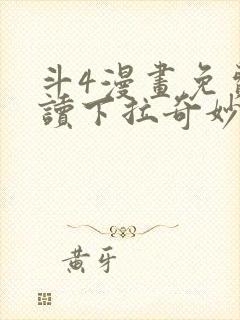 斗4漫畫免費
讀下拉奇妙
黃牙